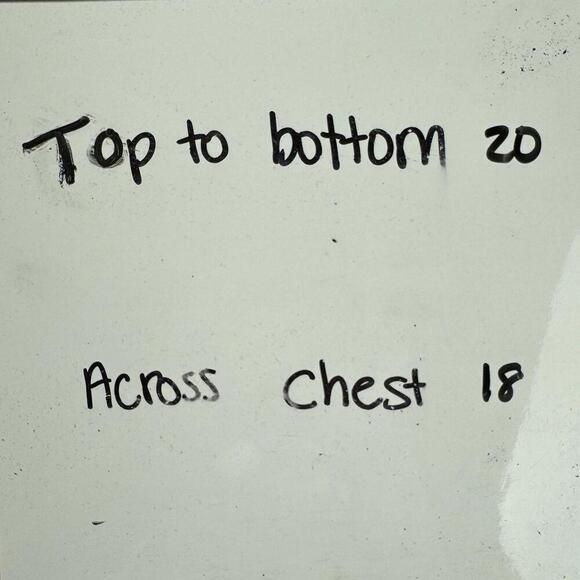 Top to bottom 20
Across Chest 18